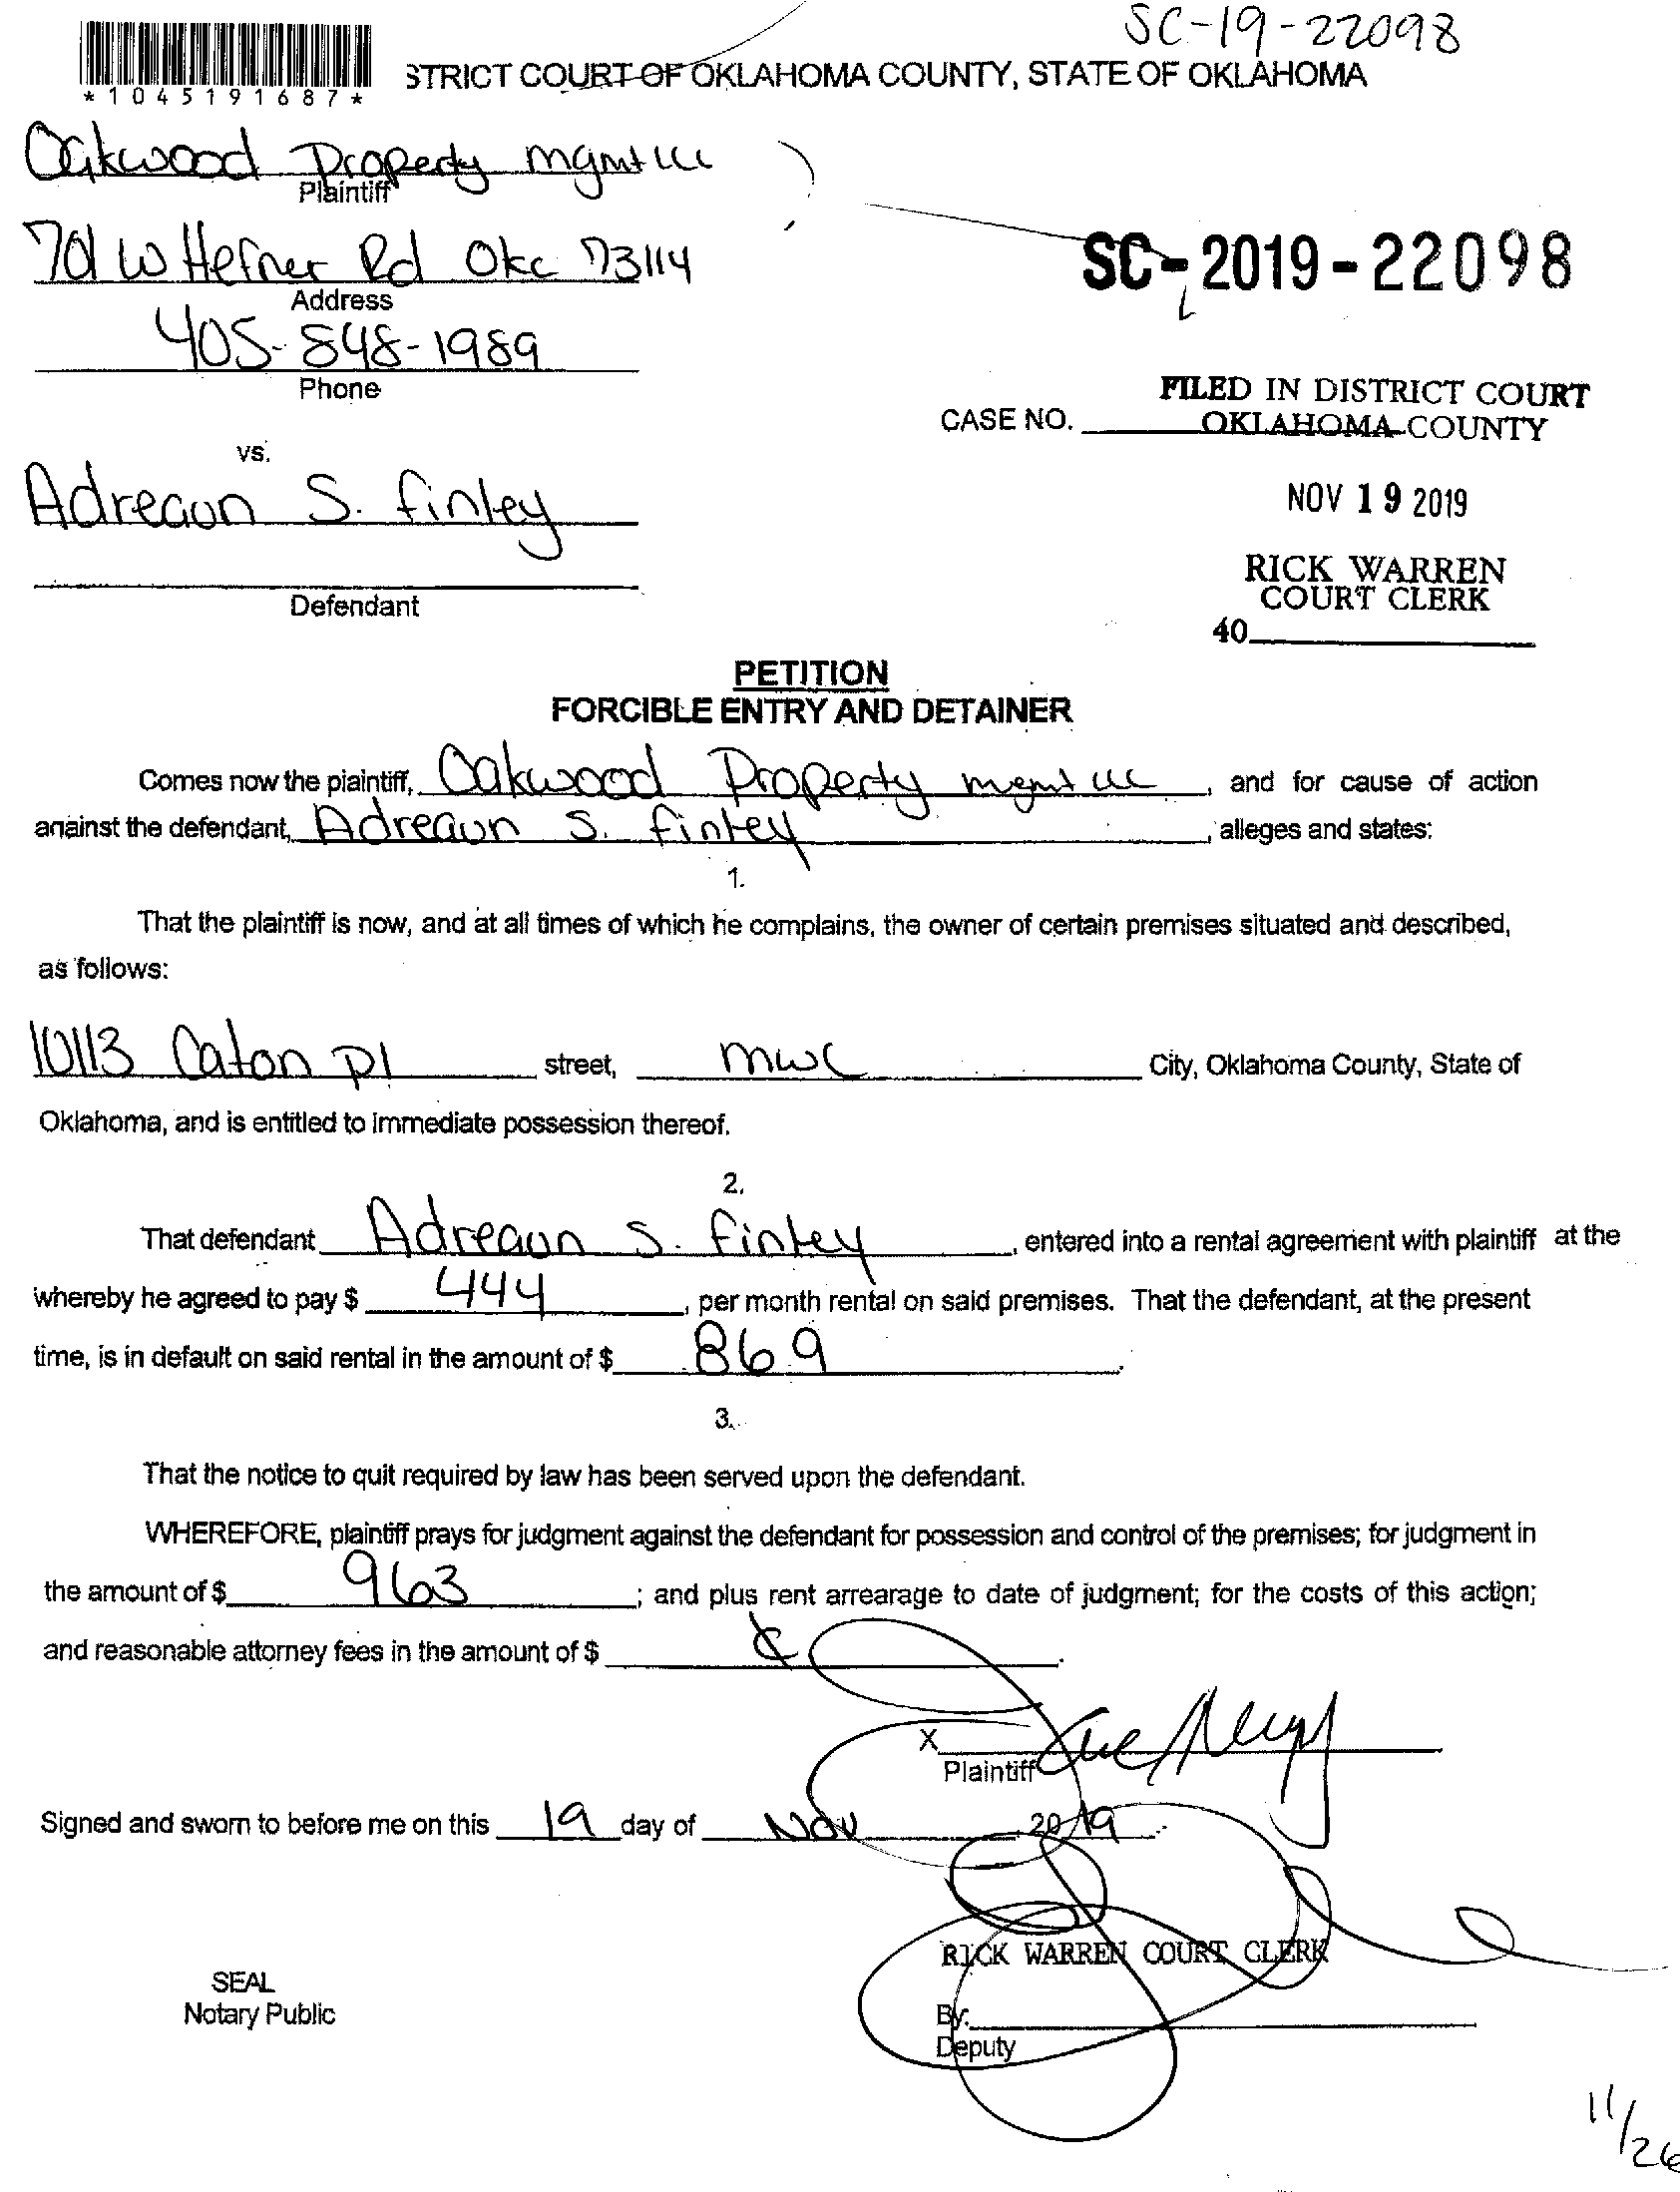 SC-19-22098
STRICT COURT OF OKLAHOMA COUNTY, STATE OF OKLAHOMA
*1045191687*
Oakwood Property Mgmt LLC
Plaintiff
701 W Hefner Rd Okc 73114
Address
405-848-1989
Phone
SC-2019-22098
FILED IN DISTRICT COURT
CASE NO. OKLAHOMA COUNTY
vs.
Adreaun S. Finley
NOV 19 2019
RICK WARREN
COURT CLERK
Defendant
40
PETITION
FORCIBLE ENTRY AND DETAINER
Comes now the plaintiff, Oakwood Property mgmt LLC, and for cause of action
against the defendant, Adreaun S. Finley, alleges and states:
1.
That the plaintiff is now, and at all times of which he complains, the owner of certain premises situated and described,
as follows:
10113 Caton Pl street, MWC City, Oklahoma County, State of
Oklahoma, and is entitled to immediate possession thereof.
2.
That defendant Adreaun S. Finley, entered into a rental agreement with plaintiff at the
whereby he agreed to pay $ 444, per month rental on said premises. That the defendant, at the present
time, is in default on said rental in the amount of $ 869.
3.
That the notice to quit required by law has been served upon the defendant.
WHEREFORE, plaintiff prays for judgment against the defendant for possession and control of the premises; for judgment in
the amount of $ 963; and plus rent arrearage to date of judgment; for the costs of this action;
and reasonable attorney fees in the amount of $
X
Plaintiff
Signed and sworn to before me on this 19 day of Nov 2019
RICK WARREN COURT CLERK
SEAL
Notary Public
By:
Deputy
11/26